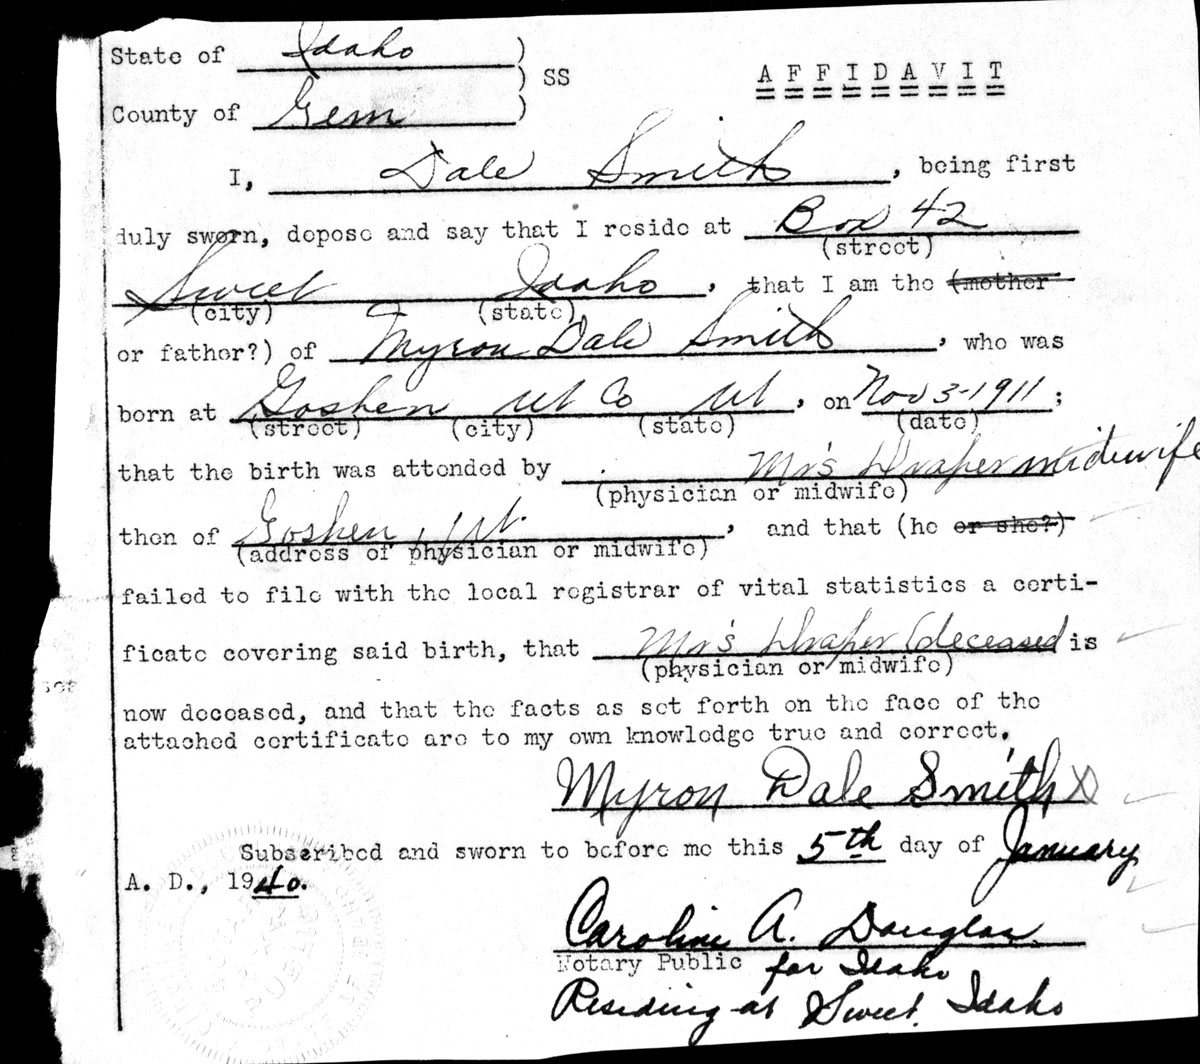 State of Idaho )
) SS
AFFIDAVIT
County of Gem )
I, Dale Smith, being first
duly sworn, depose and say that I reside at Box 42
(street)
Sweet Idaho, that I am the (mother
(city) (state)
or father?) of Myron Dale Smith, who was
born at Goshen Ut Co Ut, on Nov 3-1911;
(street) (city) (state) (date)
that the birth was attended by Mrs Draper midwife
(physician or midwife)
then of Goshen, Ut., and that (he or she?)
(address of physician or midwife)
failed to file with the local registrar of vital statistics a certi-
ficate covering said birth, that Mrs Draper (deceased is
(physician or midwife)
now deceased, and that the facts as set forth on the face of the
attached certificate are to my own knowledge true and correct.
Myron Dale Smith X
Subscribed and sworn to before me this 5th day of January
A. D., 1940.
Caroline A. Douglas
Notary Public for Idaho
Residing at Sweet, Idaho